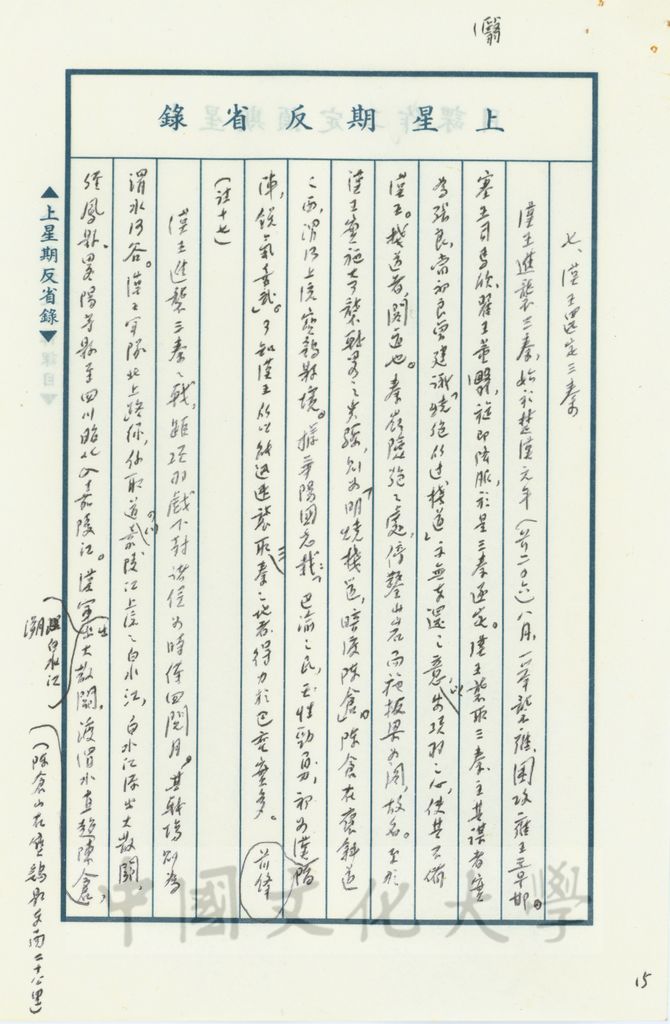 上星期反省錄
七、漢王還定三秦
漢王進襲三秦,始於楚漢元年(前二〇六)八月,一舉襲雍,圍攻雍王章邯。
塞王司馬欣、翟王董翳,旋即降服,於是三秦遂定。漢王襲取三秦,主其謀者實
為張良,當初良曾建議「燒絕所過棧道」,示無東還之意,以安項羽之心,使其不備
漢王。棧道者,閣道也。秦嶺險絕之處,傍鑿山岩而施板梁為閣,故名。至於
漢王實施奇襲戰略之步驟,則為「明燒棧道,暗渡陳倉」。陳倉在褒斜道
之西,渭河上流寶鷄縣境。據華陽國志載:「巴渝之民,天性勁勇,初為漢前鋒
陣,銳氣喜武」。可知漢王所以能迅速襲取三秦之地者,得力於巴賨實多。
(註十七)
漢王進襲三秦之戰,距項羽戲下封諸侯為時僅四閱月。其戰場則為
渭水河谷。漢王軍隊北上路線,係取道嘉陵江上流之白水江,白水江源出大散關,
經鳳縣、畧陽等縣至四川昭化入嘉陵江。漢軍出大散關,渡渭水直趨陳倉,
溯白水江
(陳倉山在寶鷄縣東南二十公里)
▲上星期反省錄▼
翳
15
中國文化大學